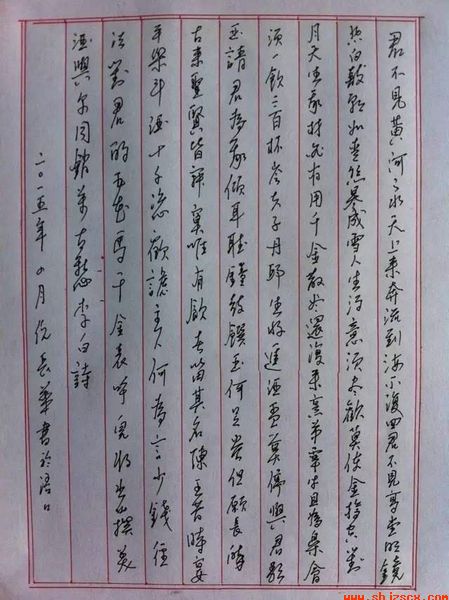 君不見黃河之水天上來奔流到海不復回君不見高堂明鏡
悲白髮朝如青絲暮成雪人生得意須盡歡莫使金樽空對
月天生我材必有用千金散盡還復來烹羊宰牛且為樂會
須一飲三百杯岑夫子丹邱生將進酒盃莫停與君歌
請君為我傾耳聽鐘鼓饌玉何足貴但願長醉
古來聖賢皆寂寞唯有飲者留其名陳王昔時宴
平樂斗酒十千恣歡謔主人何為言少錢徑
沽對君酌五花馬千金裘呼兒將出換美
酒與尔同銷萬古愁李白詩
二〇一五年 月倪長華書於
www.shizscx.com